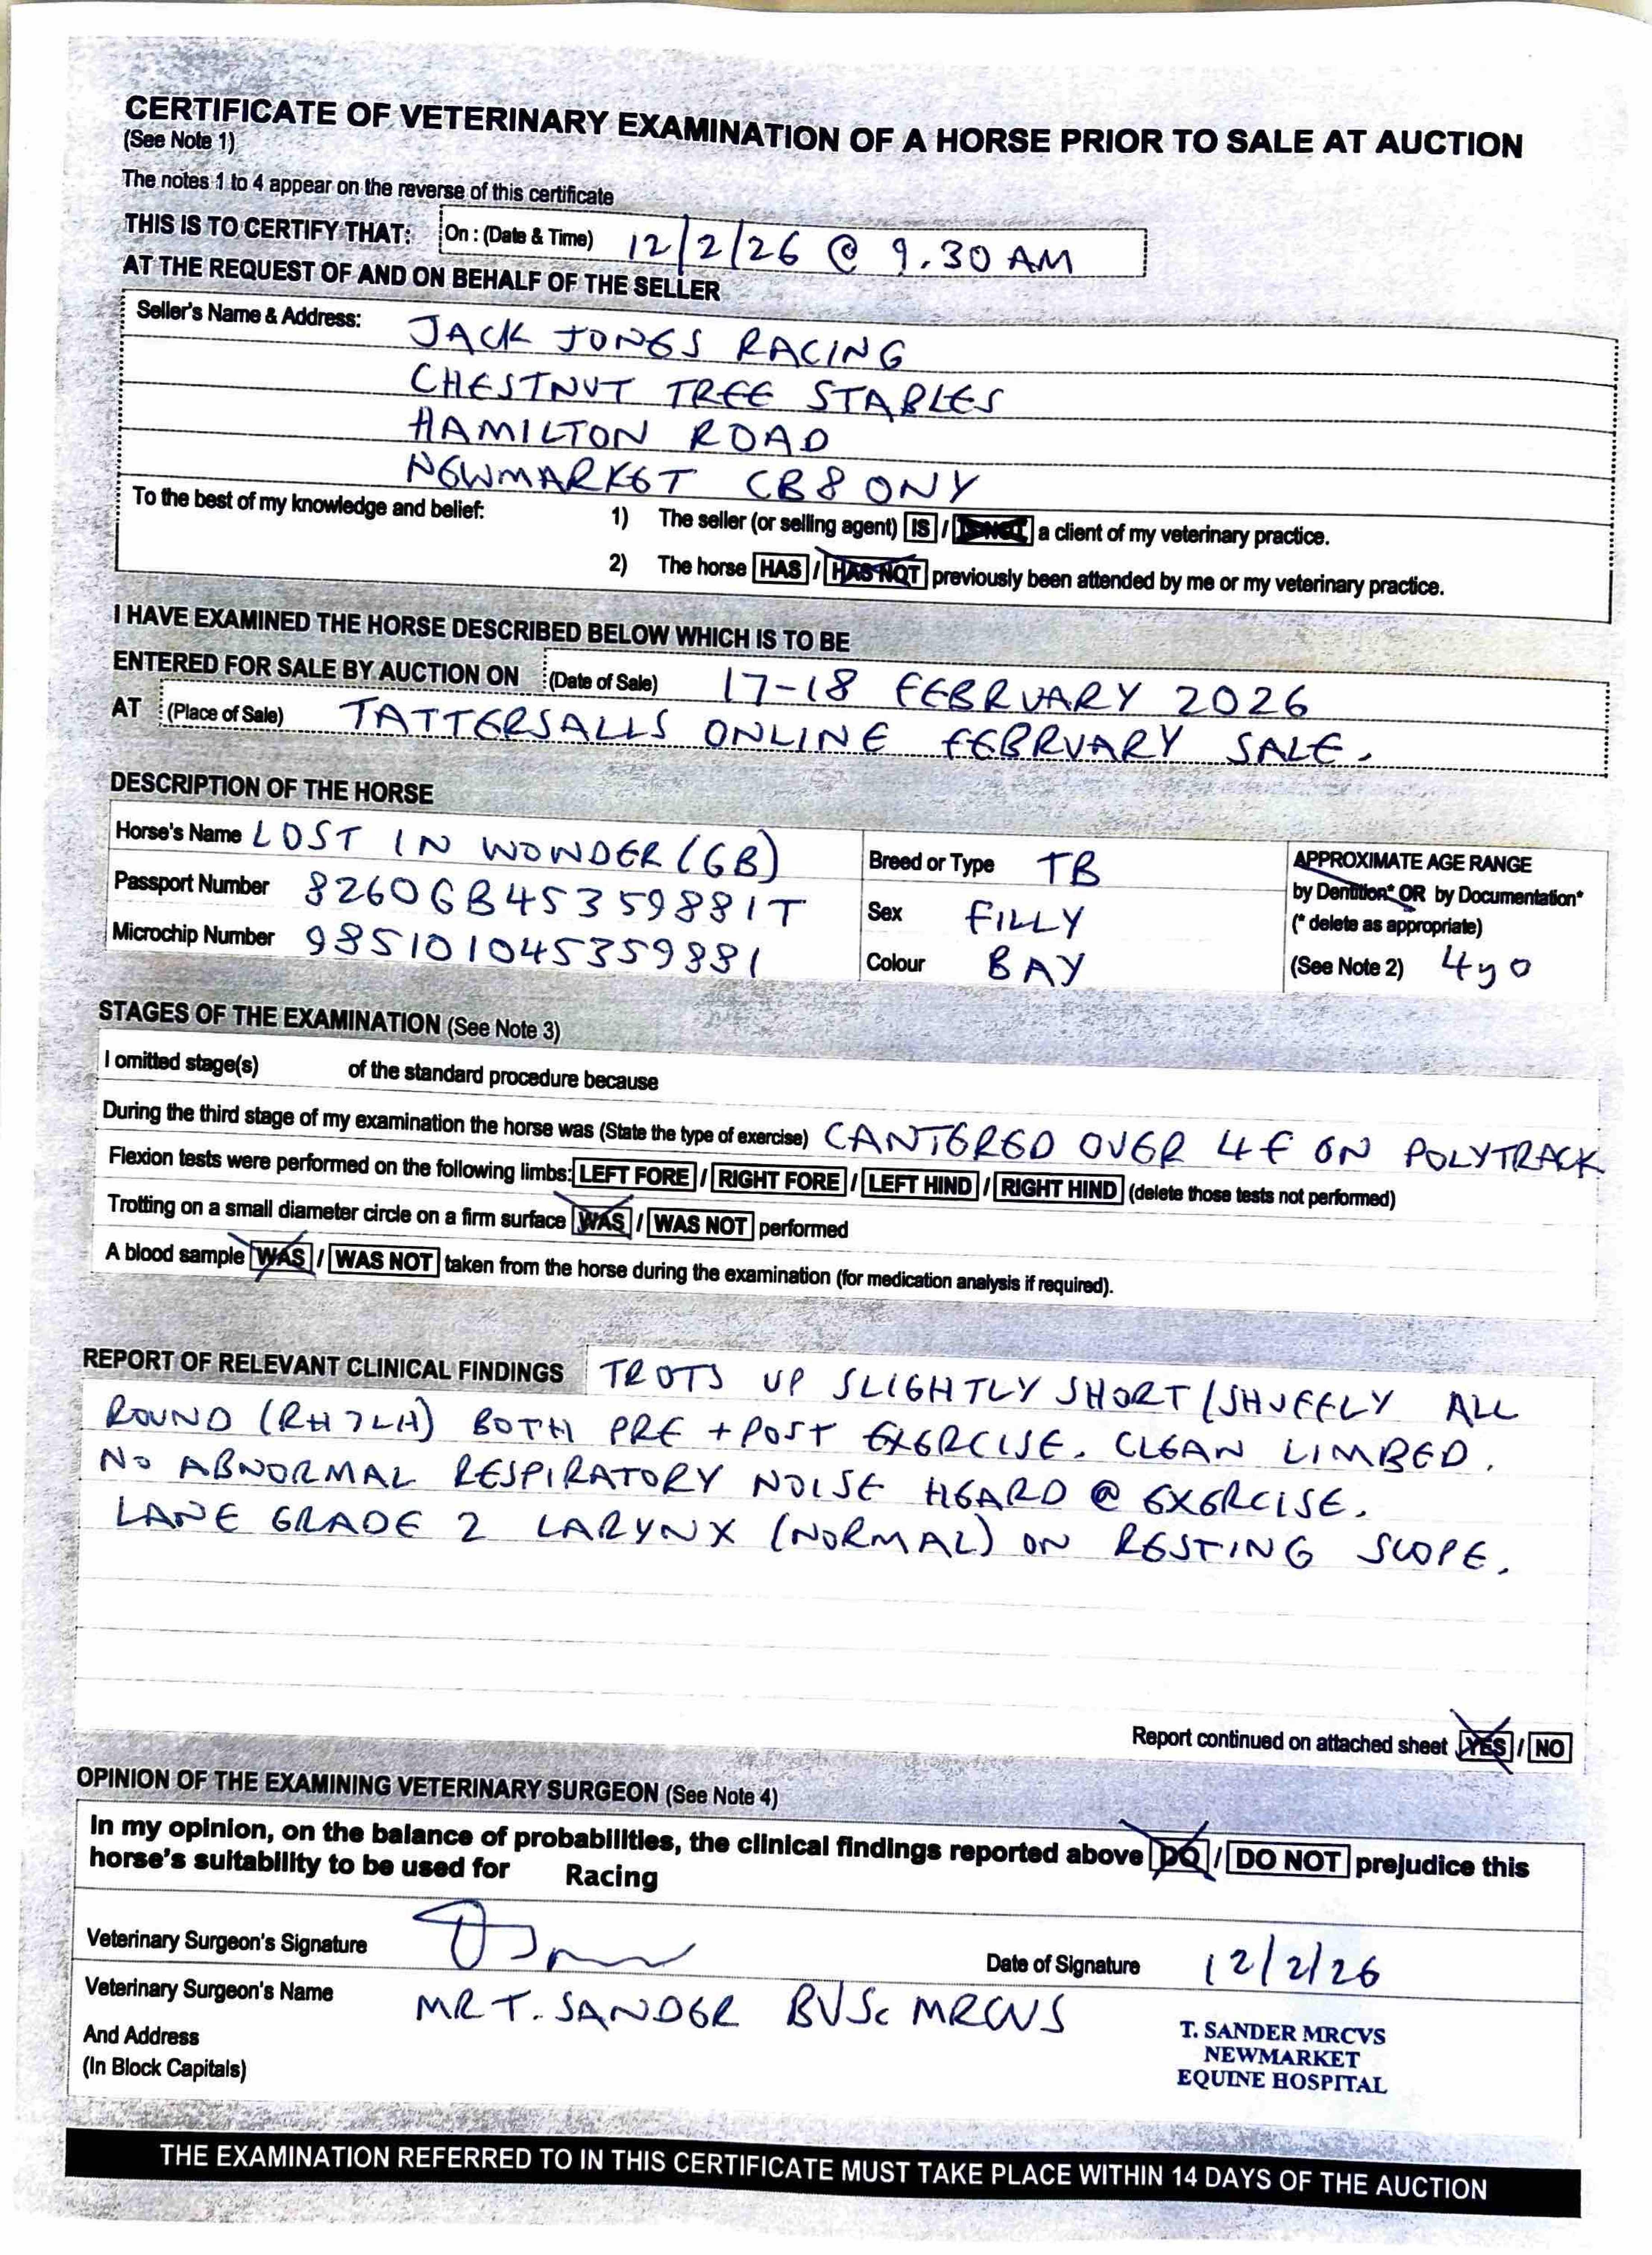 CERTIFICATE OF VETERINARY EXAMINATION OF A HORSE PRIOR TO SALE AT AUCTION
(See Note 1)
The notes 1 to 4 appear on the reverse of this certificate
THIS IS TO CERTIFY THAT: On : (Date & Time) 12/2/26 @ 9.30 AM
AT THE REQUEST OF AND ON BEHALF OF THE SELLER
Seller's Name & Address: JACK JONES RACING
CHESTNUT TREE STABLES
HAMILTON ROAD
NEWMARKET CB8 0NY
To the best of my knowledge and belief: 1) The seller (or selling agent) IS / IS NOT a client of my veterinary practice.
2) The horse HAS / HAS NOT previously been attended by me or my veterinary practice.
I HAVE EXAMINED THE HORSE DESCRIBED BELOW WHICH IS TO BE
ENTERED FOR SALE BY AUCTION ON (Date of Sale) 17-18 FEBRUARY 2026
AT (Place of Sale) TATTERSALLS ONLINE FEBRUARY SALE.
DESCRIPTION OF THE HORSE
Horse's Name LOST IN WONDER (GB) Breed or Type TB APPROXIMATE AGE RANGE
Passport Number 8260GB45359881T Sex FILLY by Dentition* OR by Documentation*
(* delete as appropriate)
Microchip Number 985101045359881 Colour BAY (See Note 2) 4yo
STAGES OF THE EXAMINATION (See Note 3)
I omitted stage(s) of the standard procedure because
During the third stage of my examination the horse was (State the type of exercise) CANTERED OVER 4F ON POLYTRACK
Flexion tests were performed on the following limbs: LEFT FORE / RIGHT FORE / LEFT HIND / RIGHT HIND (delete those tests not performed)
Trotting on a small diameter circle on a firm surface WAS / WAS NOT performed
A blood sample WAS / WAS NOT taken from the horse during the examination (for medication analysis if required).
REPORT OF RELEVANT CLINICAL FINDINGS TROTS UP SLIGHTLY SHORT/SHUFFLY ALL
ROUND (RH>LH) BOTH PRE + POST EXERCISE. CLEAN LIMBED.
NO ABNORMAL RESPIRATORY NOISE HEARD @ EXERCISE.
LANE GRADE 2 LARYNX (NORMAL) ON RESTING SCOPE.
Report continued on attached sheet YES / NO
OPINION OF THE EXAMINING VETERINARY SURGEON (See Note 4)
In my opinion, on the balance of probabilities, the clinical findings reported above DO / DO NOT prejudice this
horse's suitability to be used for Racing
Veterinary Surgeon's Signature Date of Signature 12/2/26
Veterinary Surgeon's Name MR T. SANDER BVSc MRCVS
And Address
(In Block Capitals)
T. SANDER MRCVS
NEWMARKET
EQUINE HOSPITAL
THE EXAMINATION REFERRED TO IN THIS CERTIFICATE MUST TAKE PLACE WITHIN 14 DAYS OF THE AUCTION